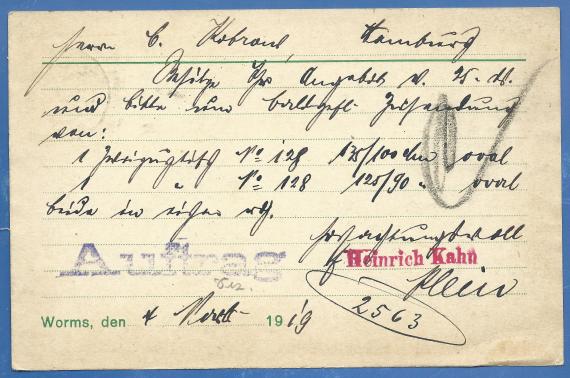 Herrn C. Kobrow, Hamburg
Besitze Ihr Angebot v. 25. ds.
und bitte um baldgefl. Zusendung
von:
1 Zweizugtisch No 128 135/100 cm oval
1 " No 128 125/90 " oval
beide in eichen
Hochachtungsvoll
Auftrag
Heinrich Kahn
Worms, den 4 1919
2563